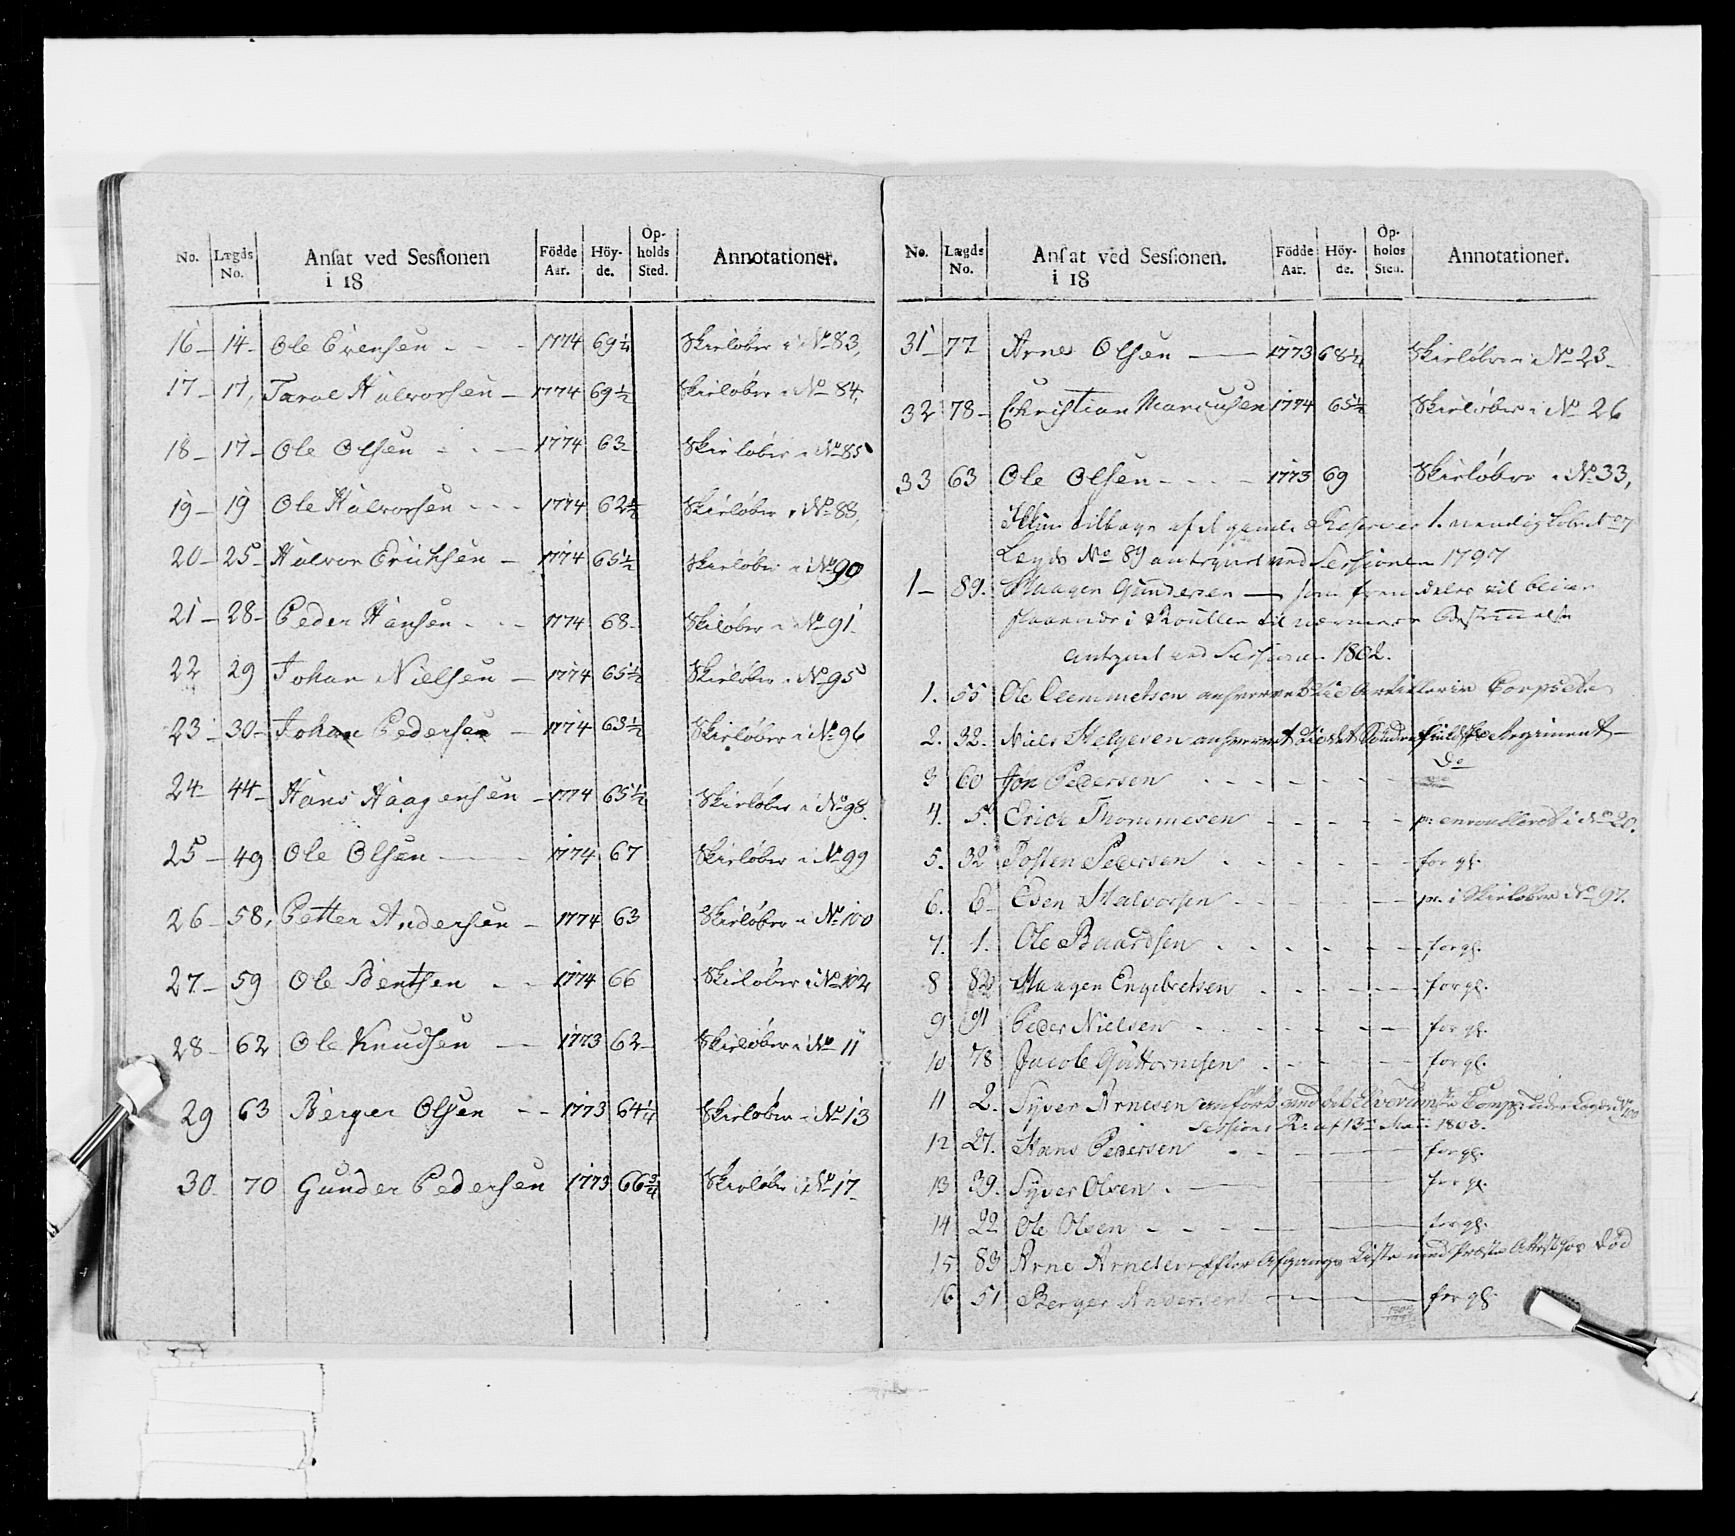 No. Lægds No. Ansat ved Sessionen i 18 Födde Aar. Höy-de. Op-holds Sted. Annotationer.
16 - 14 - Ole Evensen - - - 1774 69 1/4 Skieløber i No 83,
17 - 17, Taral Halvorsen - 1774 69 1/2 Skieløber i No 84,
18 - 17 - Ole Olsen - - - 1774 63 - Skieløber i No 85
19 - 19 Ole Halvorsen - - - 1774 62 1/2 Skieløber i No 88,
20 - 25 - Halvor Erichsen - 1774 65 1/2 Skieløber i No 90
21 - 28 - Peder Hansen - - - 1774 68 - Skiløber i No 91 -
22 29 Johan Nielsen - 1774 65 1/2 Skieløber i No 95
23 - 30 - Johan Pedersen - 1774 63 1/2 Skieløber i No 96
24 - 44 - Hans Haagensen - 1774 65 1/2 Skieløber i No 98.
25 - 49 Ole Olsen - - - 1774 67 Skieløber i No 99
26 - 58, Petter Andersen - 1774 63 Skieløber i No 100
27 - 59 Ole Bentsen - - 1774 66 Skieløber i No 102
28 - 62 Ole Knudsen - - 1773 62 - Skieløber i No 11
29 63 Berger Olsen - - 1773 64 1/4 Skieløber i No 13
30 70 Gunder Pedersen 1773 66 3/4 Skieløber i No 17 -
No. Lægds No. Ansat ved Sessionen. i 18 Födde Aar. Höy-de. Op-holds Sted. Annotationer.
31 - 77 Arne Olsen - - 1773 68 1/4 Skieløber i No 23 -
32 78 - Christian Marcusen 1774 65 1/2 Skieløber i No 26
33 63 Ole Olsen - - - 1773 69 Skieløber i No 33,
tilbage af d gamle Reserver 1.
Lægds No 89 antegnet ved Sessionen 1797
1 - 89. Haagen Gundersen - som fremdeles vil blive
staaende i Roullen til nærmere Bestemmelse
antegnet ved Sessionen 1802.
1. 55 Ole Clemmetsen Artillerie Corpset
2. 32. Niels Helgesen Søndenfieldske Regiment -
3 60 Jon Pedersen - - - - - Do
4. 5. Erich Thommesen - - - - - enroulleret i No 20.
5. 32 Posten Pedersen - - - - - for gl.
6. 6 - Eden Halvorsen - - - - - i Skieløber No 97.
7. 1. Ole Baardsen - - - - - for gl.
8 82 Haagen Engebretsen - - - - - for gl.
9 91 Peder Nielsen - - - - - for gl.
10 78 Jacob Guttormsen - - - - - for gl.
11 2. Syver Arnesen anført ved det Elverumske Comp: under Lægds No 100
Sessions Pr: af 13de Mai 1803.
12 27. Hans Pedersen - - - - - for gl.
13 39. Syver Olsen - - - - for gl.
14 22 Ole Olsen - - - - - for gl.
15 83 Arne Arnesen efter Afgangs Liste med Præste Attest for død
16 51 Berger Andersen - - - - for gl.